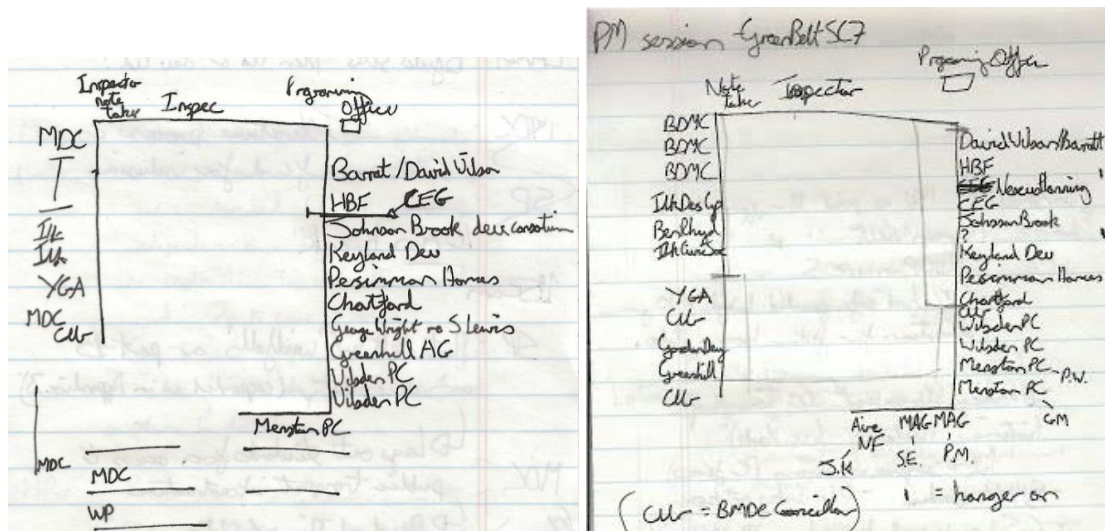 Inspector
note
taker
Inspec
Programing
Office
MDC
Ilk
Ilk
YGA
MDC
Cllr
Barret / David Wilson
HBF
CEG
Johnson Brook dev consortium
Keyland Dev
Persimmon Homes
Chartford
George Wright no S lewis
Greenhill AG
Wilsden PC
Wilsden PC
Menston PC
MDC
MDC
WP
PM session - Green Belt SC7
Programing Office
Note
taker
Inspector
BDMC
BDMC
BDMC
Ilk Des Gp
Ben Rhyd
Ilk Civic Soc
YGA
Cllr
Greenhill
Cllr
David Wilson/Barratt
HBF
Nexus Planning
CEG
Johnson Brook
?
Keyland Dev
Persimmon Homes
Chartford
Cllr
Wilsden PC
Wilsden PC
Menston PC - P.W.
Menston PC
GM
Aire
NF
MAG
MAG
J.K
S.E.
P.M.
(Cllr = BMDC Councillor)
= hanger on